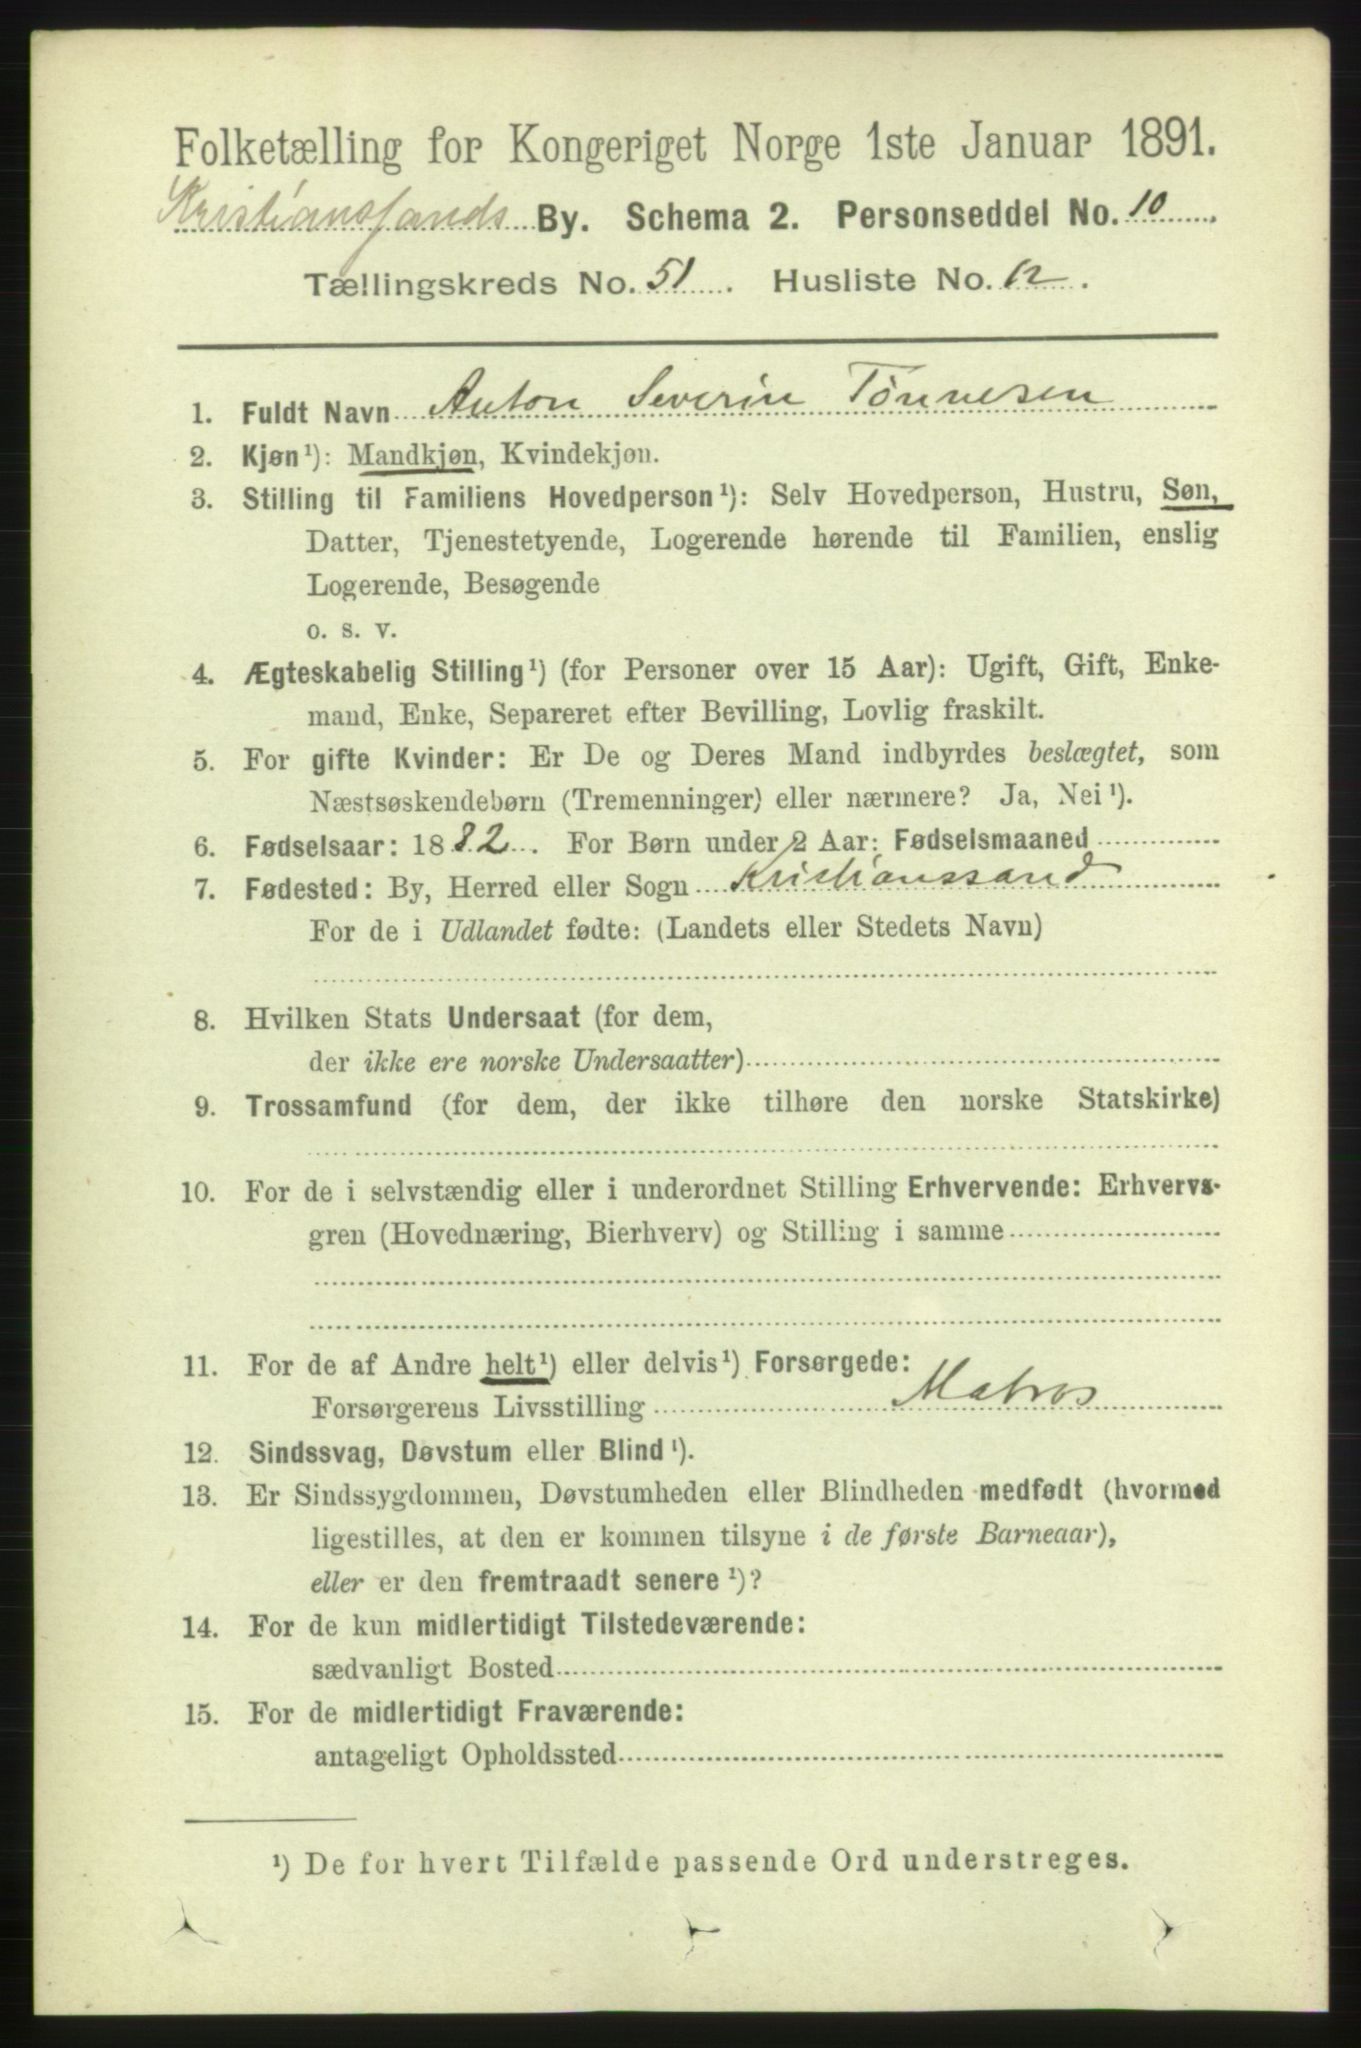 Folketælling for Kongeriget Norge 1ste Januar 1891.
Kristianssands By. Schema 2. Personseddel No. 10.
Tællingskreds No. 51. Husliste No. 12.
1. Fuldt Navn Anton Severin Tönnesen
2. Kjøn¹): Mandkjøn, Kvindekjøn.
3. Stilling til Familiens Hovedperson¹): Selv Hovedperson, Hustru, Søn,
Datter, Tjenestetyende, Logerende hørende til Familien, enslig
Logerende, Besøgende
o. s. v.
4. Ægteskabelig Stilling¹) (for Personer over 15 Aar): Ugift, Gift, Enke-
mand, Enke, Separeret efter Bevilling, Lovlig fraskilt.
5. For gifte Kvinder: Er De og Deres Mand indbyrdes beslægtet, som
Næstsøskendebørn (Tremenninger) eller nærmere? Ja, Nei¹).
6. Fødselsaar: 1882. For Børn under 2 Aar: Fødselsmaaned
7. Fødested: By, Herred eller Sogn Kristianssand
For de i Udlandet fødte: (Landets eller Stedets Navn)
8. Hvilken Stats Undersaat (for dem,
der ikke ere norske Undersaatter)
9. Trossamfund (for dem, der ikke tilhøre den norske Statskirke)
10. For de i selvstændig eller i underordnet Stilling Erhvervende: Erhvervs-
gren (Hovednæring, Bierhverv) og Stilling i samme
11. For de af Andre helt¹) eller delvis¹) Forsørgede:
Forsørgerens Livsstilling Matros
12. Sindssvag, Døvstum eller Blind¹).
13. Er Sindssygdommen, Døvstumheden eller Blindheden medfødt (hvormed
ligestilles, at den er kommen tilsyne i de første Barneaar),
eller er den fremtraadt senere¹)?
14. For de kun midlertidigt Tilstedeværende:
sædvanligt Bosted
15. For de midlertidigt Fraværende:
antageligt Opholdssted
¹) De for hvert Tilfælde passende Ord understreges.